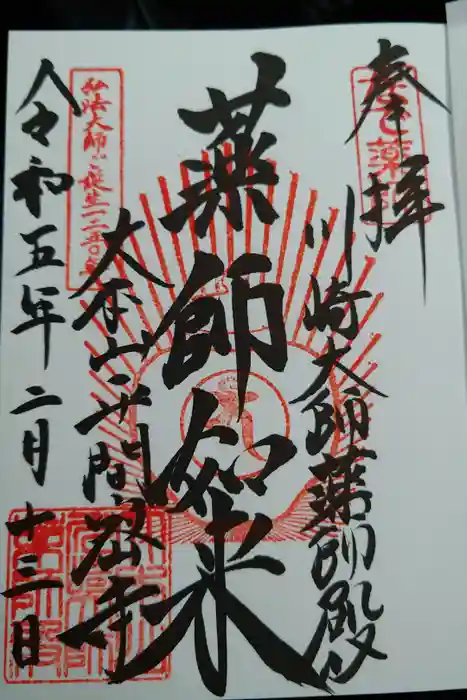 奉拝
なで薬師
川崎大師薬師殿
薬師如来
大本山平間寺
弘法大師ご誕生一二五〇年
令和五年二月十三日